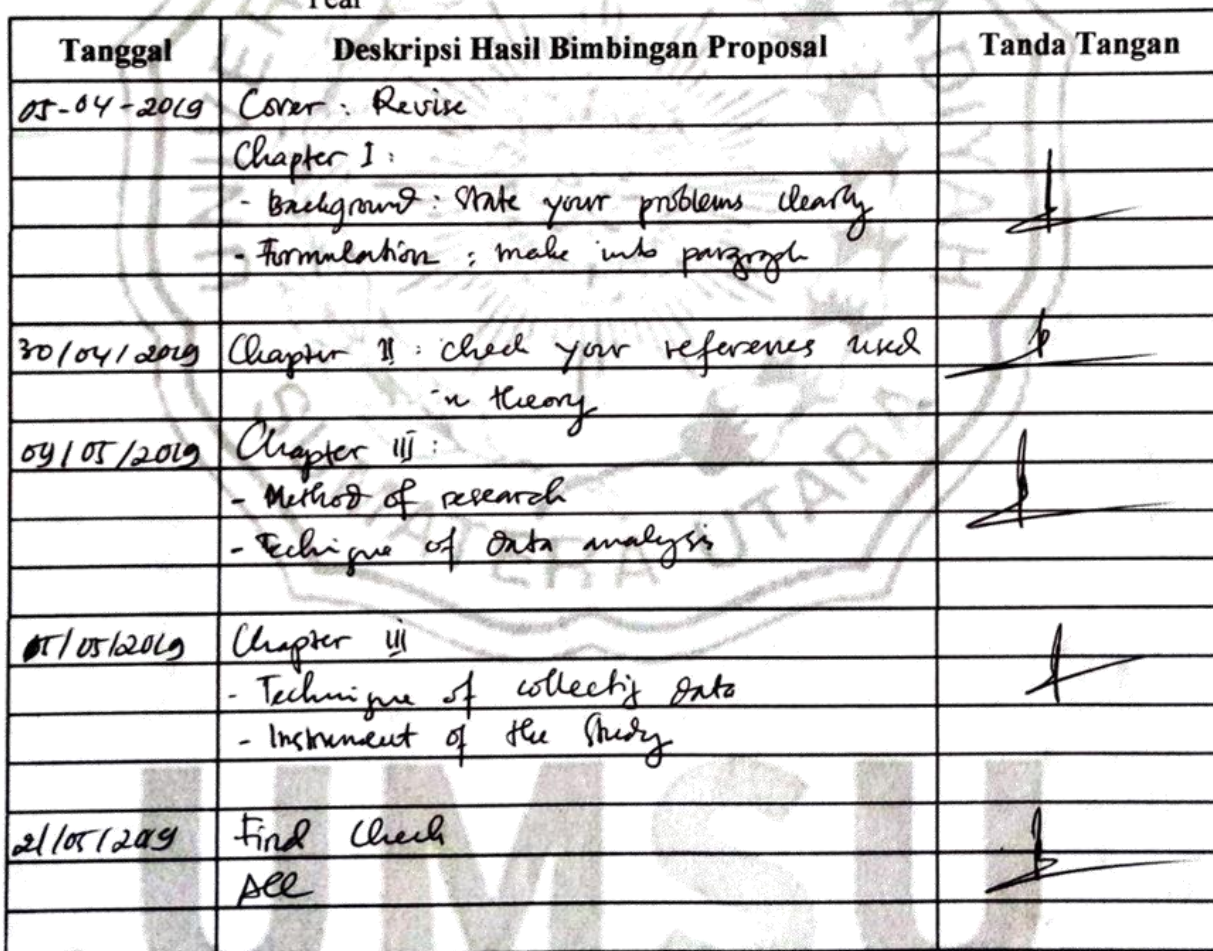 Year
Tanggal Deskripsi Hasil Bimbingan Proposal Tanda Tangan
05-04-2019 Cover : Revise
Chapter I :
- Background : State your problems clearly
- Formulation : make into paragraph
30/04/2019 Chapter II : check your references used
in theory
Chapter III :
- Method of research
- Techique of data analysis
/05/2019 Chapter III
- Technique of collectig data
- Instrument of the Study
21/05/2019 Check
UMSU